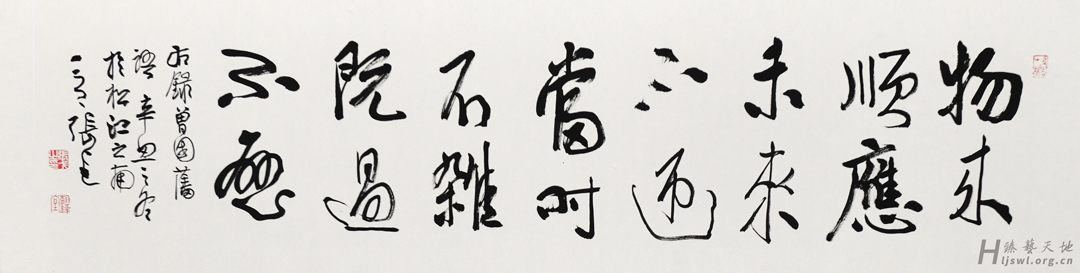 物来
順應
未來
不迎
當时
不雜
既過
不戀
右錄曾國藩
語 辛丑之冬
於松江之
張
藝天地
Hljswl.org.cn